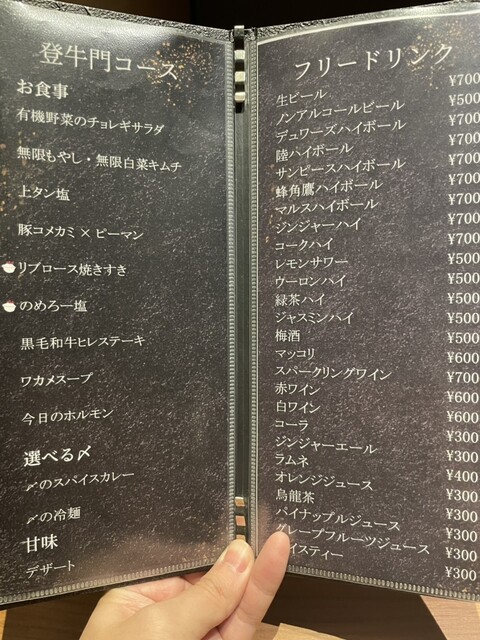 登牛門コース
お食事
有機野菜のチョレギサラダ
無限もやし・無限白菜キムチ
上タン塩
豚コメカミ×ピーマン
リブロース焼きすき
のめろー塩
黒毛和牛ヒレステーキ
ワカメスープ
今日のホルモン
選べる〆
〆のスパイスカレー
〆の冷麺
甘味
デザート
フリードリンク
生ビール ¥700
ノンアルコールビール ¥500
デュワーズハイボール ¥700
陸ハイボール ¥700
サンピースハイボール ¥700
蜂角鷹ハイボール ¥700
マルスハイボール ¥700
ジンジャーハイ ¥700
コークハイ ¥700
レモンサワー ¥500
ウーロンハイ ¥500
緑茶ハイ ¥500
ジャスミンハイ ¥500
梅酒 ¥500
マッコリ ¥600
スパークリングワイン ¥700
赤ワイン ¥600
白ワイン ¥600
コーラ ¥300
ジンジャーエール ¥300
ラムネ ¥400
オレンジジュース ¥300
烏龍茶 ¥300
パイナップルジュース ¥300
グレープフルーツジュース ¥300
イスティー ¥300